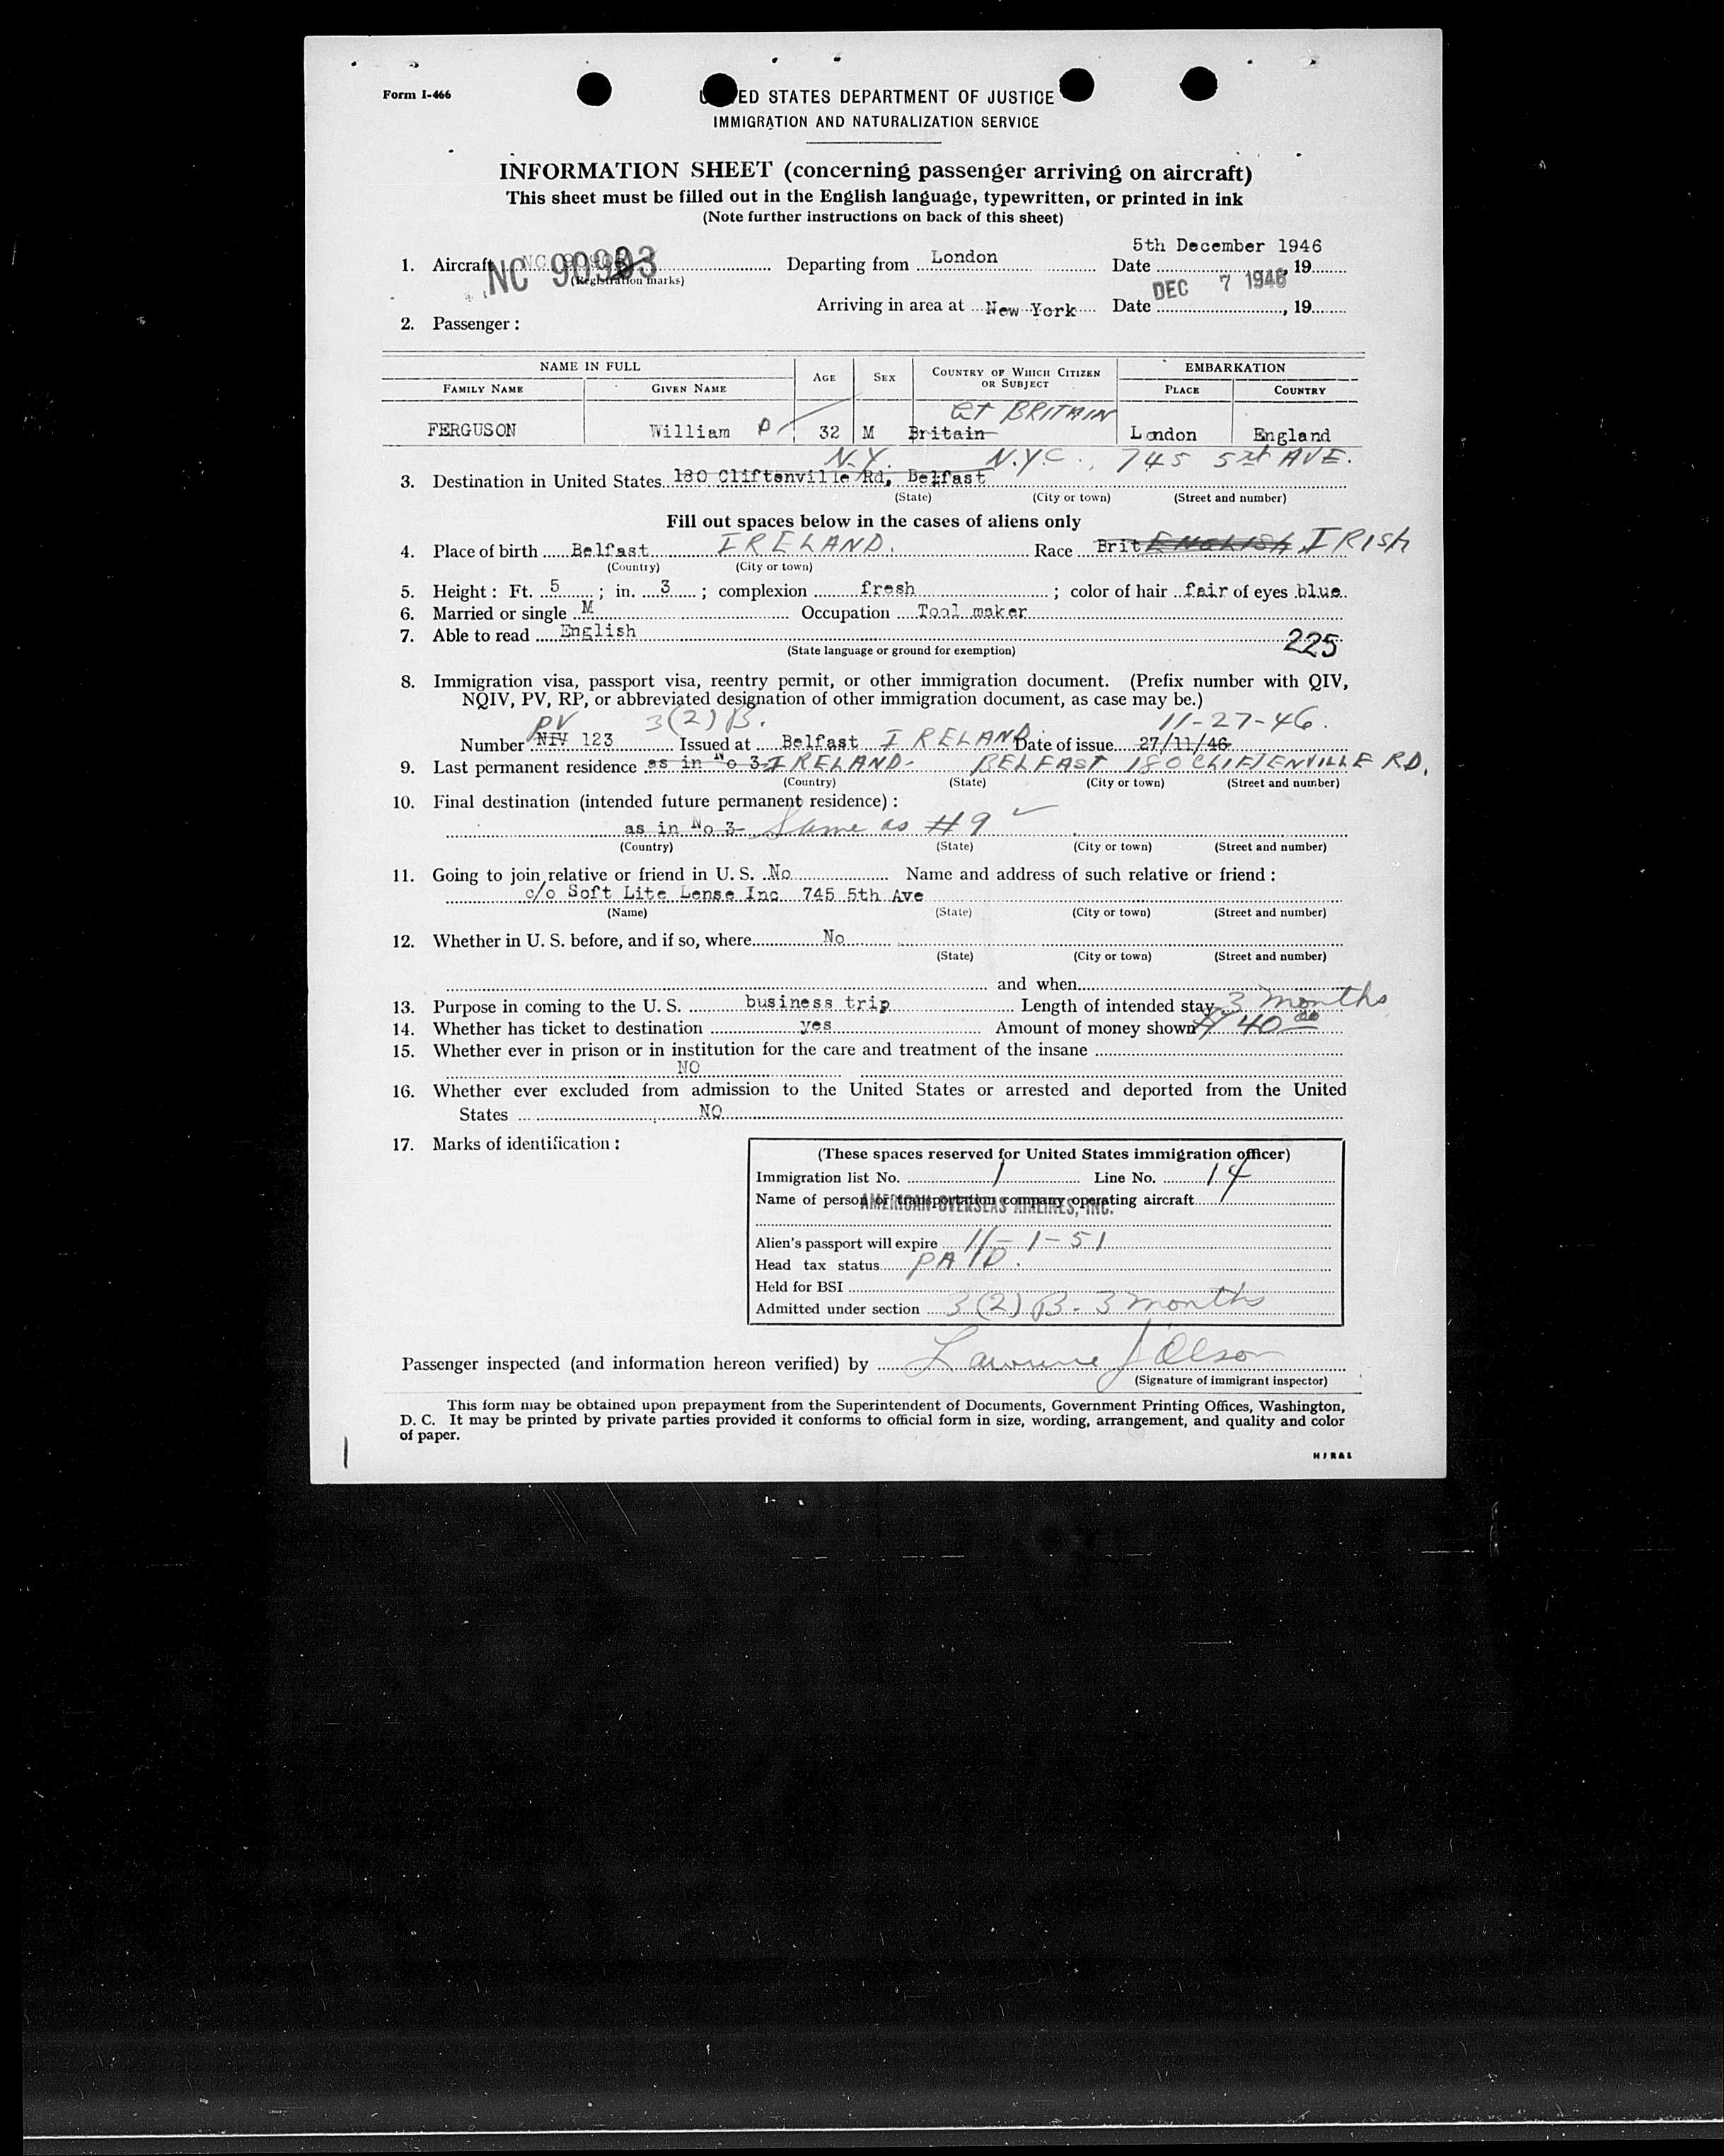 Form I-466
UNITED STATES DEPARTMENT OF JUSTICE
IMMIGRATION AND NATURALIZATION SERVICE
INFORMATION SHEET (concerning passenger arriving on aircraft)
This sheet must be filled out in the English language, typewritten, or printed in ink
(Note further instructions on back of this sheet)
5th December 1946
1. Aircraft NC 90903 Departing from London Date , 19
(Registration marks)
DEC 7 1946
Arriving in area at New York Date , 19
2. Passenger :
NAME IN FULL AGE SEX COUNTRY OF WHICH CITIZEN OR SUBJECT EMBARKATION
FAMILY NAME GIVEN NAME PLACE COUNTRY
GT BRITAIN
FERGUSON William P 32 M Britain London England
N.Y. N.Y.C., 745 5th AVE.
3. Destination in United States 180 Cliftenville Rd, Belfast
(State) (City or town) (Street and number)
Fill out spaces below in the cases of aliens only
4. Place of birth Belfast IRELAND. Race Brit ENGLISH IRISH
(Country) (City or town)
5. Height : Ft. 5 ; in. 3 ; complexion fresh ; color of hair fair of eyes blue
6. Married or single M Occupation Tool maker
7. Able to read English 225
(State language or ground for exemption)
8. Immigration visa, passport visa, reentry permit, or other immigration document. (Prefix number with QIV,
NQIV, PV, RP, or abbreviated designation of other immigration document, as case may be.)
PV 3(2)B. 11-27-46.
Number NIV 123 Issued at Belfast IRELAND Date of issue 27/11/46
9. Last permanent residence as in No 3 IRELAND- BELFAST 180 CLIFTENVILLE RD.
(Country) (State) (City or town) (Street and number)
10. Final destination (intended future permanent residence) :
as in No 3 Same as #9
(Country) (State) (City or town) (Street and number)
11. Going to join relative or friend in U. S. No Name and address of such relative or friend :
c/o Soft Lite Lense Inc 745 5th Ave
(Name) (State) (City or town) (Street and number)
12. Whether in U. S. before, and if so, where No
(State) (City or town) (Street and number)
and when
13. Purpose in coming to the U. S. business trip Length of intended stay 3 months
14. Whether has ticket to destination yes Amount of money shown $ 40 00
15. Whether ever in prison or in institution for the care and treatment of the insane
NO
16. Whether ever excluded from admission to the United States or arrested and deported from the United
States NO
17. Marks of identification :
(These spaces reserved for United States immigration officer)
Immigration list No. 1 Line No. 14
Name of person or transportation company operating aircraft
AMERICAN OVERSEAS AIRLINES, INC.
Alien's passport will expire 11-1-51
Head tax status PAID.
Held for BSI
Admitted under section 3(2)B. 3 months
Passenger inspected (and information hereon verified) by Lawrence J Olson
(Signature of immigrant inspector)
This form may be obtained upon prepayment from the Superintendent of Documents, Government Printing Offices, Washington,
D. C. It may be printed by private parties provided it conforms to official form in size, wording, arrangement, and quality and color
of paper.